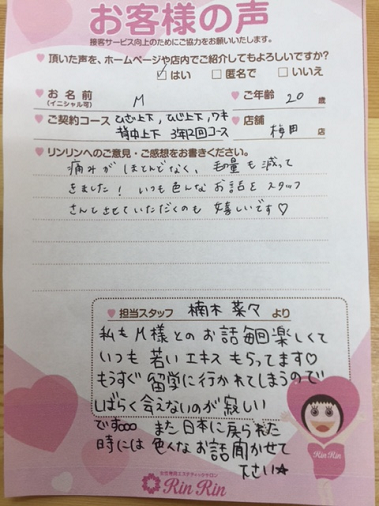 お客様の声
接客サービス向上のためにご協力をお願いいたします。
頂いた声を、ホームページや店内でご紹介してもよろしいですか?
はい 匿名で いいえ
お名前 M ご年齢 20 歳
(イニシャル可)
ご契約コース ひざ上下, ひじ上下, ワキ 店舗 梅田 店
背中上下 3年12回コース
リンリンへのご意見・ご感想をお書きください。
痛みがほとんどなく、毛量も減って
きました! いつも色んなお話をスタッフ
さんとさせていただくのも嬉しいです♡
担当スタッフ 楠木 菜々 より
私もM様とのお話毎回楽しくて
いつも若いエキスもらってます♡
もうすぐ留学に行かれてしまうので
しばらく会えないのが寂しい
です。。。 また日本に戻られた
時には色んなお話聞かせて
下さい☆
Rin Rin
女性専用エステティックサロン
Rin Rin